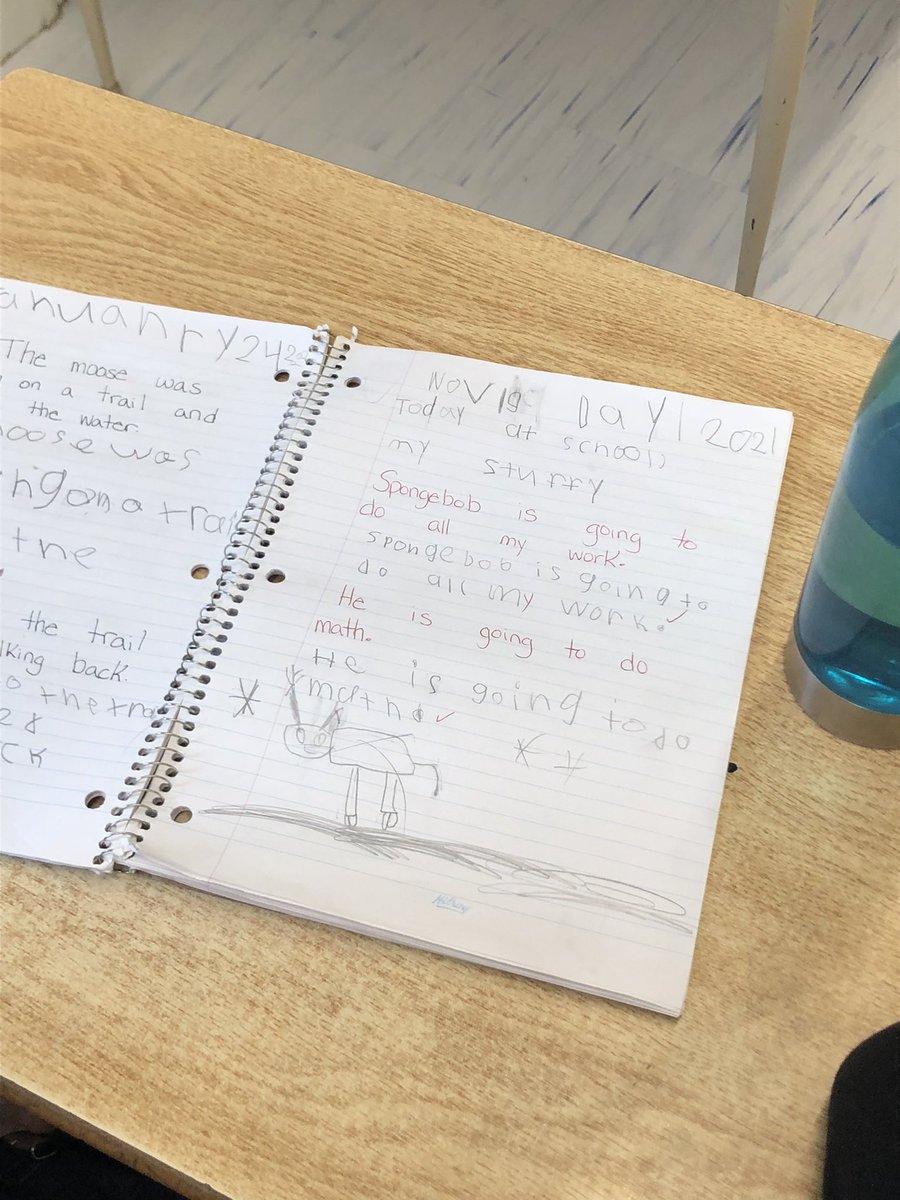 anuanry 24
The moose was
on a trail and
the water.
oose was
ng on a trai
the
the trail
lking back.
o the tra
CK
Nov 19 Day 1 2021
Today at school
my stuffy
Spongebob is going to
do all my work.
spongebob is going to
do all my work.
He is going to do
math.
He is going to do
math.
Hilroy